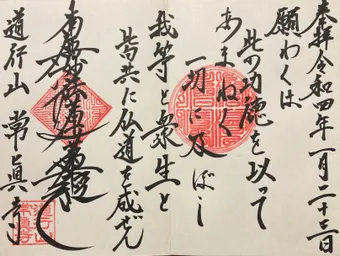 奉拝 令和四年一月二十三日
願わくは
此の功徳を以って
あまねく
一切に及ぼし
我等と衆生と
皆共に仏道を成ぜん
南無妙法蓮華経
道行山 常眞寺